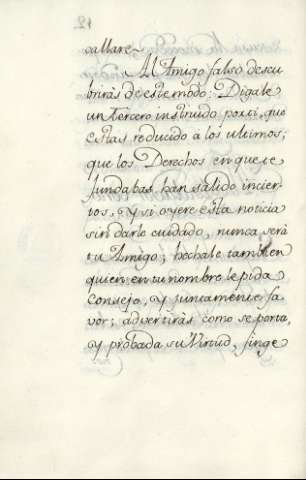 callare~
Al Amigo falso descu
briràs de este modo: Digale
un tercero instruido por ti, que
estas reducido a los ultimos;
que los Derechos en que te
fundabas, han salido incier-
tos, y si oyere esta noticia
sin darle cuidado, nunca será
tu Amigo; hechale tambien
quien en tu nombre le pida
Consejo, y juntamente fa
vor; advertiràs como se porta,
y probada su Virtud, finge